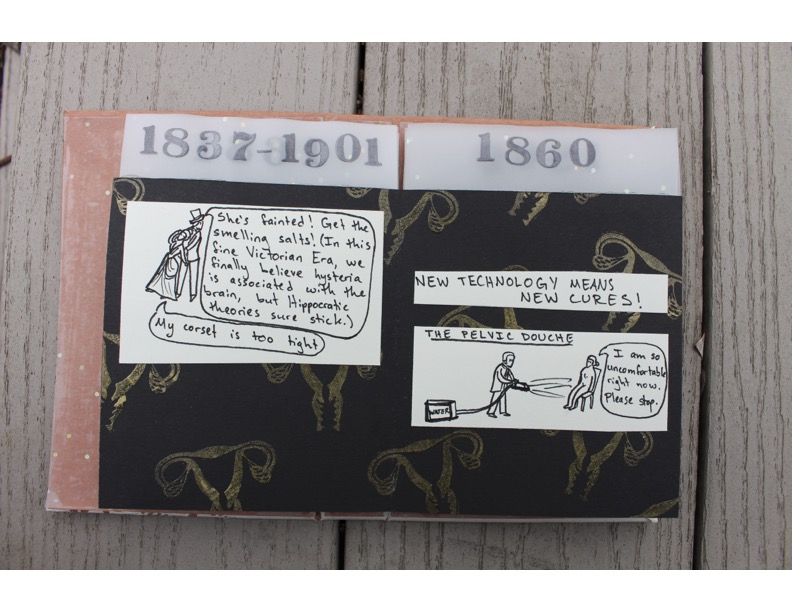 1837-1901
She's fainted! Get the
smelling salts! (In this
fine Victorian Era, we
finally believe hysteria
is associated with the
brain, but Hippocratic
theories sure stick.)
My corset is too tight
1860
NEW TECHNOLOGY MEANS
NEW CURES!
THE PELVIC DOUCHE
WATER
I am so
uncomfortable
right now.
Please stop.